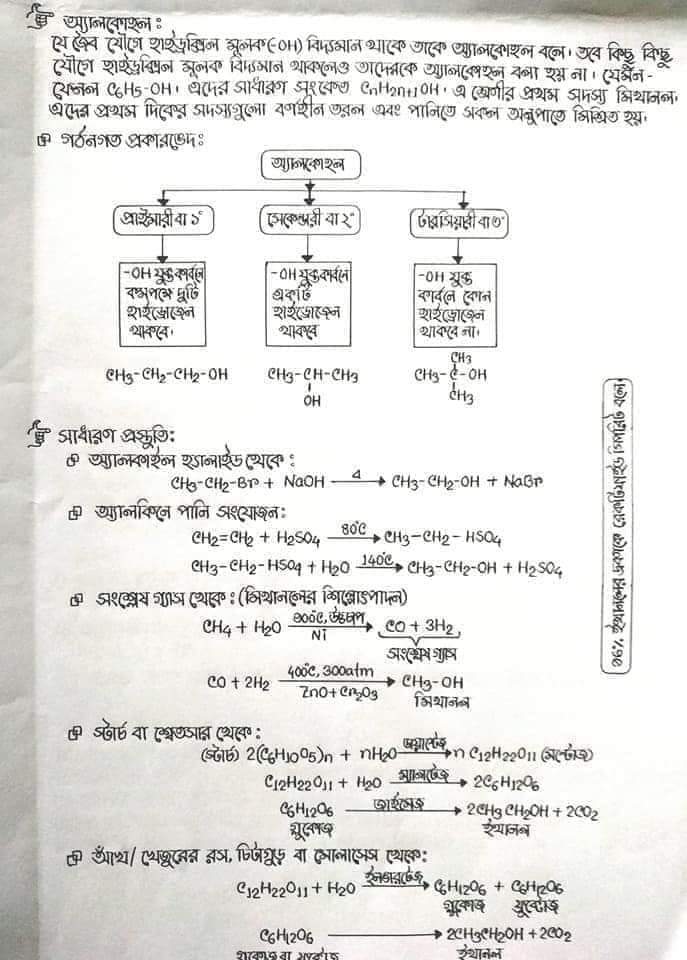 অ্যালকোহল :
যে জৈব যৌগে হাইড্রক্সিল মূলক(-OH) বিদ্যমান থাকে তাকে অ্যালকোহল বলে। তবে কিছু কিছু
যৌগে হাইড্রক্সিল মূলক বিদ্যমান থাকলেও তাদেরকে অ্যালকোহল বলা হয় না। যেমন-
ফেনল C6H5-OH। এদের সাধারণ সংকেত CnH2n+1OH। এ শ্রেণীর প্রথম সদস্য মিথানল।
এদের প্রথম দিকের সদস্যগুলো বর্ণহীন তরল এবং পানিতে সকল অনুপাতে মিশ্রিত হয়।
গঠনগত প্রকারভেদ:
অ্যালকোহল
প্রাইমারী বা ১°
সেকেন্ডারী বা ২°
টারসিয়ারী বা ৩°
-OH যুক্ত কার্বনে
কমপক্ষে দুটি
হাইড্রোজেন
থাকবে।
-OH যুক্ত কার্বনে
একটি
হাইড্রোজেন
থাকবে
-OH যুক্ত
কার্বনে কোন
হাইড্রোজেন
থাকবে না।
CH3-CH2-CH2-OH
CH3-CH-CH3
OH
CH3
CH3-C-OH
CH3
৯৬% ইথানলের দ্রবণকে রেকটিফাইড স্পিরিট বলে।
সাধারণ প্রস্তুতি:
অ্যালকাইল হ্যালাইড থেকে :
CH3-CH2-Br + NaOH Δ→ CH3-CH2-OH + NaBr
অ্যালকিনে পানি সংযোজন:
CH2=CH2 + H2SO4 80°C→ CH3-CH2-HSO4
CH3-CH2-HSO4 + H2O 140°C→ CH3-CH2-OH + H2SO4
সংশ্লেষ গ্যাস থেকে : (মিথানলের শিল্পোৎপাদন)
CH4 + H2O 900°C, উচ্চচাপ Ni→ CO + 3H2
সংশ্লেষ গ্যাস
CO + 2H2 400°C, 300atm ZnO+Cr2O3→ CH3-OH
মিথানল
স্টার্চ বা শ্বেতসার থেকে :
(স্টার্চ) 2(C6H10O5)n + nH2O ডায়াস্টেজ→ n C12H22O11 (মল্টোজ)
C12H22O11 + H2O ম্যালটেজ→ 2C6H12O6
C6H12O6 জাইমেজ→ 2CH3CH2OH + 2CO2
গ্লুকোজ ইথানল
আঁখ/ খেজুরের রস, চিটাগুড় বা মোলাসেস থেকে:
C12H22O11 + H2O ইনভারটেজ→ C6H12O6 + C6H12O6
গ্লুকোজ ফ্রুক্টোজ
C6H12O6 → 2CH3CH2OH + 2CO2
গ্লুকোজ বা ফ্রুক্টোজ ইথানল